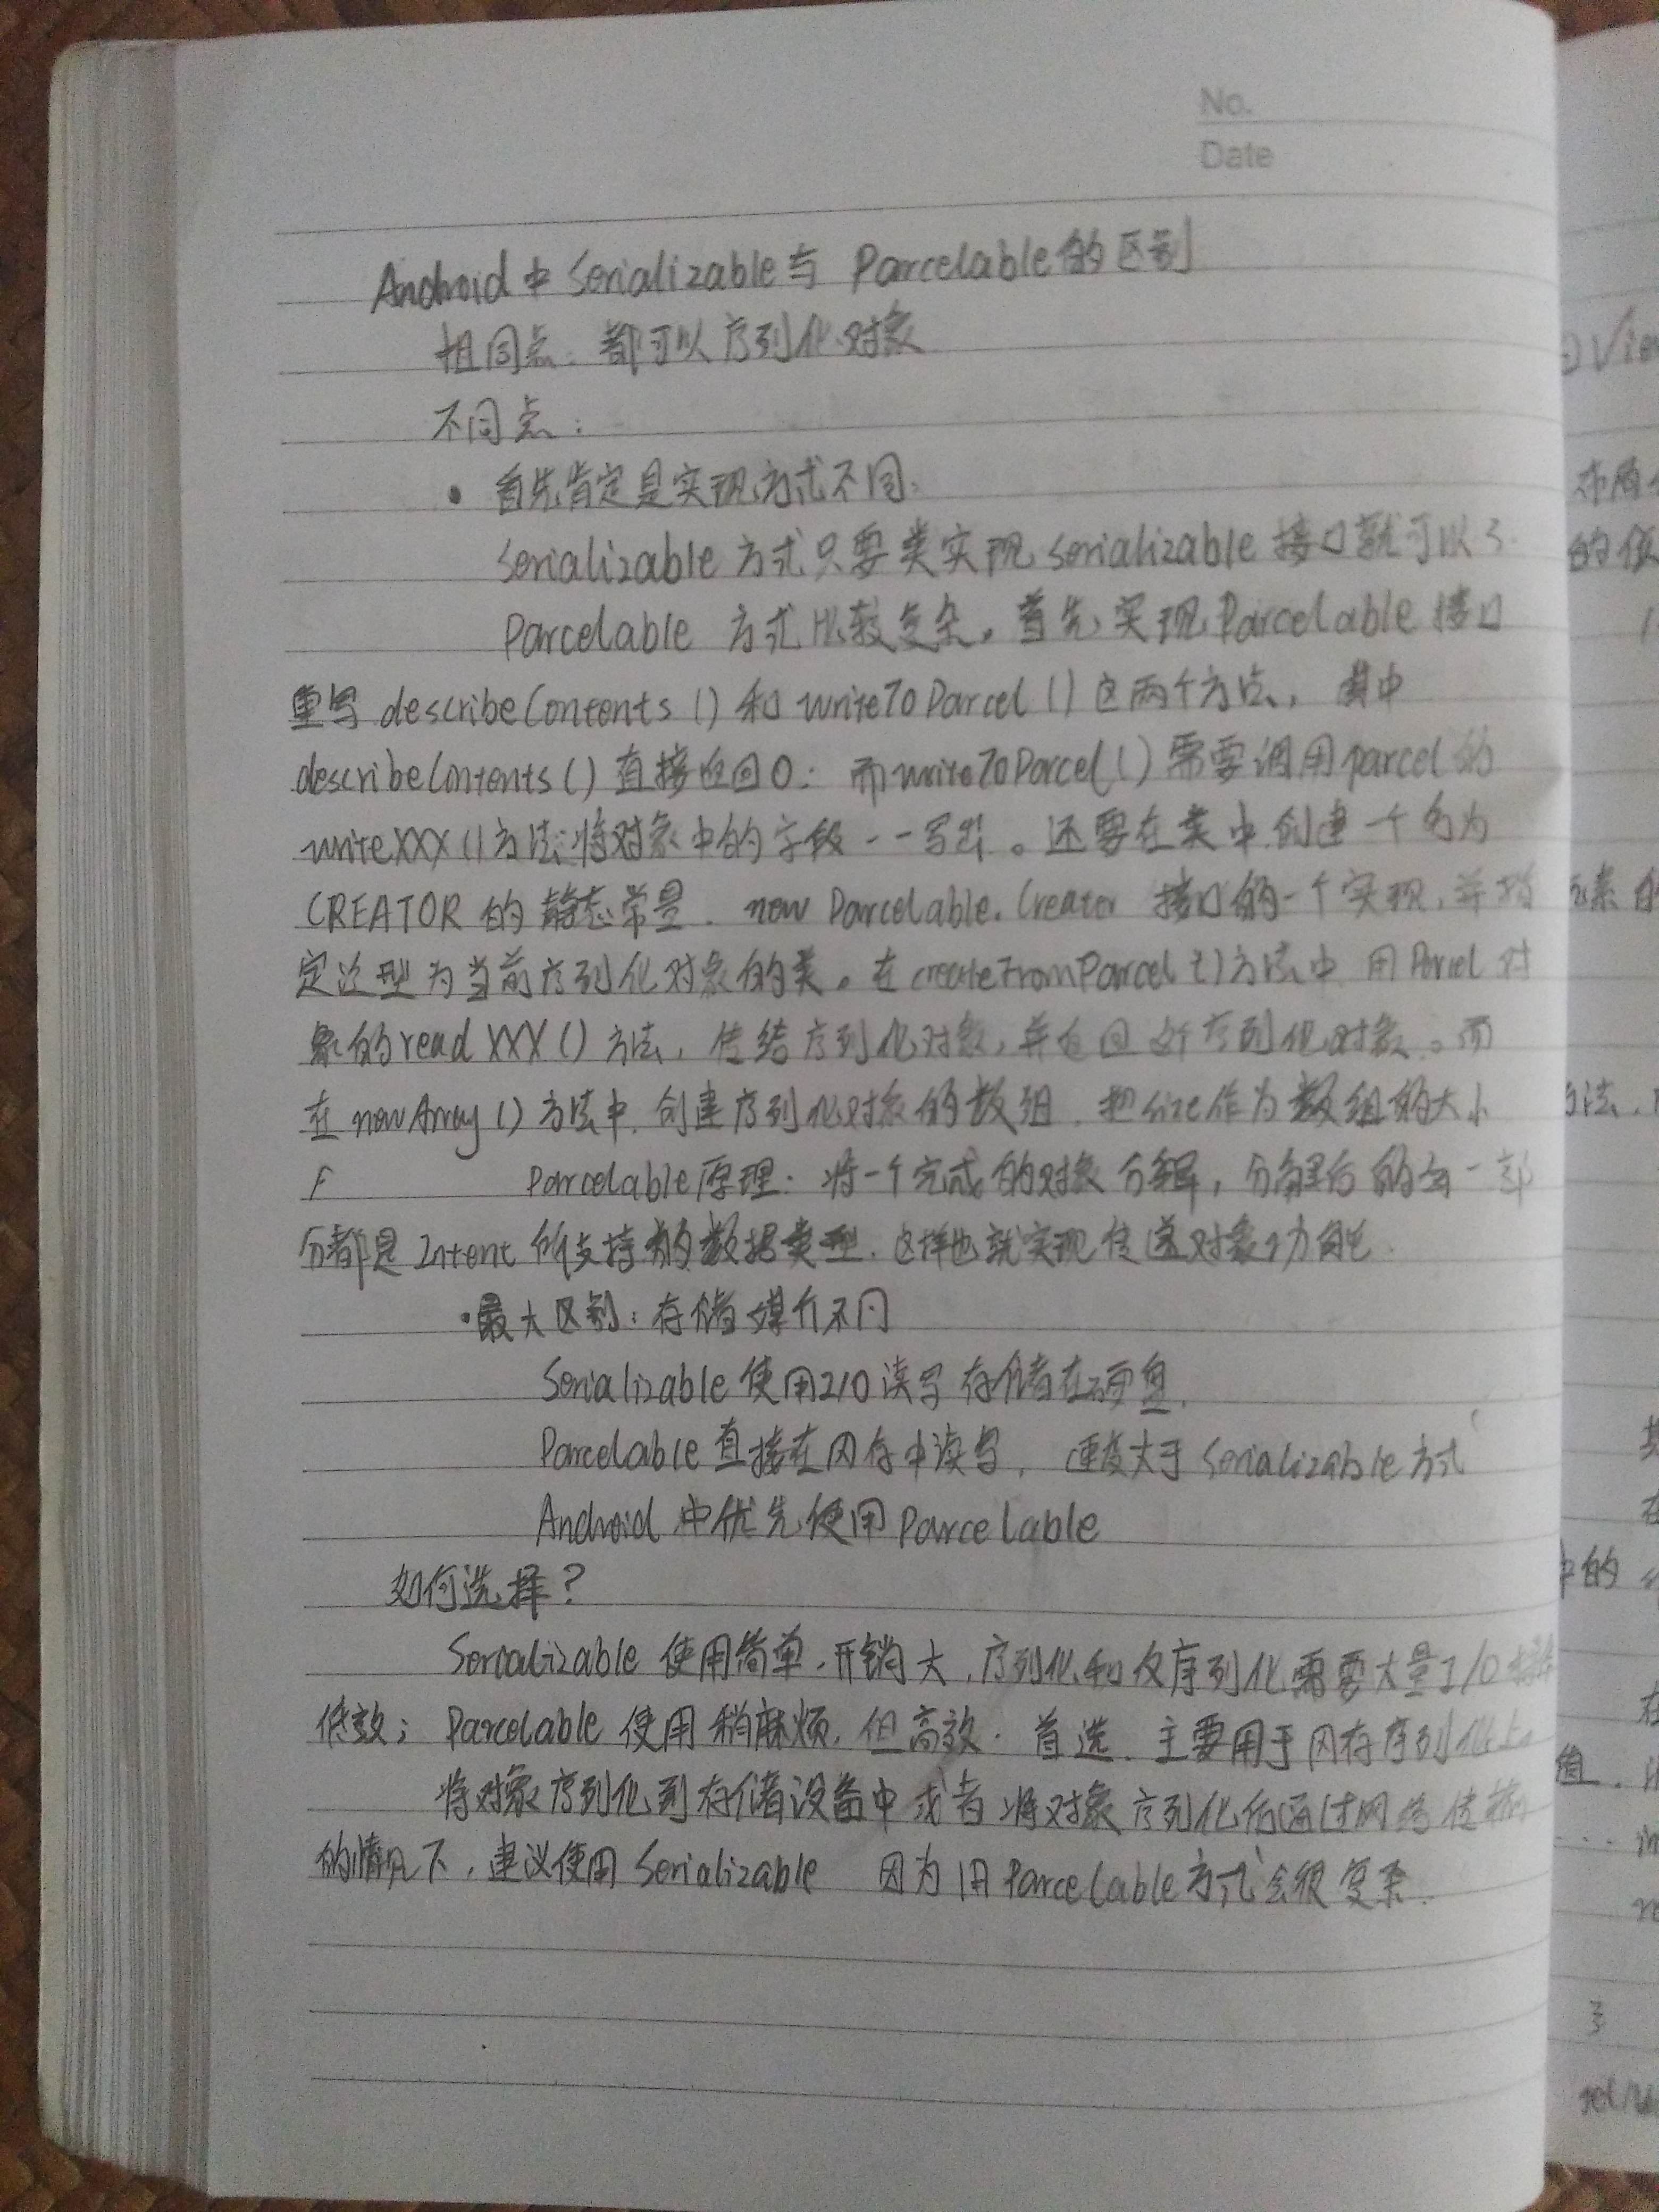 No.
Date
Android中Serializable与 Parcelable的区别
相同点：都可以序列化对象
不同点：
• 首先肯定是实现方式不同。
Serializable 方式只要类实现 Serializable 接口就可以了.
Parcelable 方式比较复杂。首先实现Parcelable接口
重写 describeContents () 和 writeToParcel () 这两个方法，其中
describeContents () 直接返回0；而writeToParcel () 需要调用parcel的
writeXXX()方法将对象中的字段一一写出。还要在类中创建一个名为
CREATOR 的 静态常量. new Parcelable.Creator 接口的一个实现，并指
定泛型为当前序列化对象的类。在createFromParcel ()方法中 用Parcel 对
象的read XXX () 方法，传给序列化对象，并返回这个序列化对象。而
在 newArray () 方法中, 创建序列化对象的数组, 把size作为数组的大小
Parcelable原理：将一个完成的对象分解，分解后的每一部
分都是 Intent 所支持的数据类型，这样也就实现传递对象功能.
•最大区别：存储媒介不同
Serializable 使用I/O读写 存储在硬盘.
Parcelable 直接在内存中读写，速度大于 Serializable方式
Android 中优先使用 Parcelable
如何选择？
Serializable 使用简单，开销大，序列化和反序列化需要大量I/O操作
低效；Parcelable 使用稍麻烦，但高效. 首选. 主要用于内存序列化上。
将对象序列化到存储设备中或者将对象序列化后通过网络传输
的情况下，建议使用 Serializable 因为用Parcelable方式会很复杂.